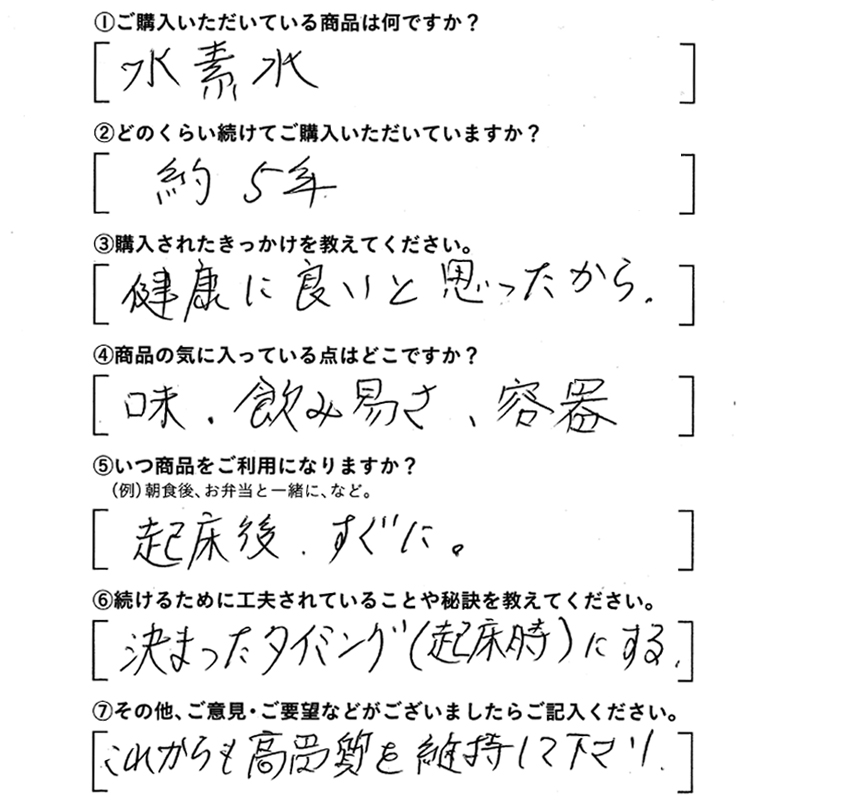 ①ご購入いただいている商品は何ですか？
[水素水]
②どのくらい続けてご購入いただいていますか？
[約5年]
③購入されたきっかけを教えてください。
[健康に良いと思ったから.]
④商品の気に入っている点はどこですか？
[味、飲み易さ、容器]
⑤いつ商品をご利用になりますか？
（例）朝食後、お弁当と一緒に、など。
[起床後、すぐに。]
⑥続けるために工夫されていることや秘訣を教えてください。
[決まったタイミング(起床時)にする.]
⑦その他、ご意見・ご要望などがございましたらご記入ください。
[これからも高品質を維持して下さい.]